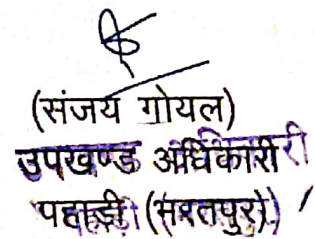 (संजय गोयल)
उपखण्ड अधिकारी
पहाड़ी (भरतपुर)